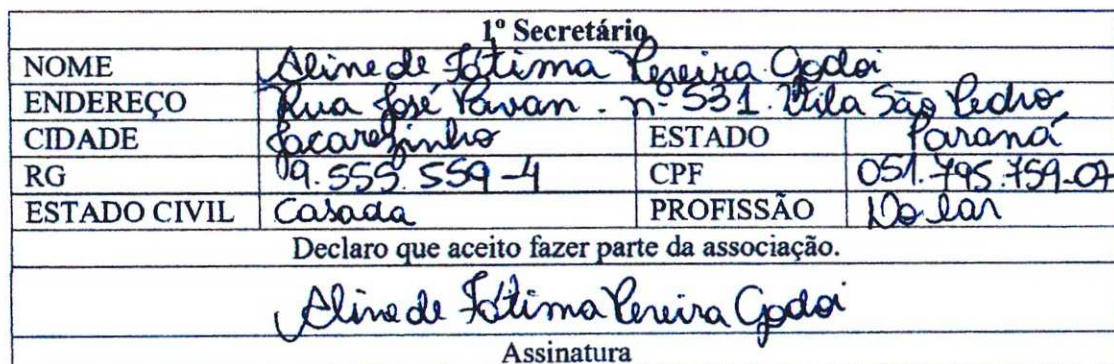 1º Secretário
NOME Aline de Fátima Pereira Godoi
ENDEREÇO Rua José Pavan - nº 531. Vila São Pedro
CIDADE Jacarezinho ESTADO Paraná
RG 9.555.559-4 CPF 051.795.759-07
ESTADO CIVIL Casada PROFISSÃO Do lar
Declaro que aceito fazer parte da associação.
Aline de Fátima Pereira Godoi
Assinatura